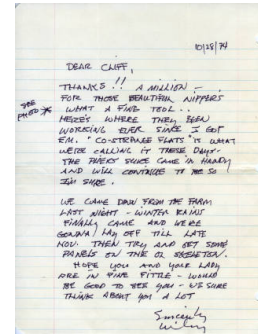 10/28/74
DEAR CLIFF,
THANKS!! A MILLION -
FOR THOSE BEAUTIFUL NIPPERS
WHAT A FINE TOOL..
SEE PHOTO
HERE'S WHERE THEY BEEN
WORKING EVER SINCE I GOT
EM. "CO-STRANGE FLATS" IS WHAT
WE'RE CALLING IT THESE DAYS -
THE SURE CAME IN HANDY
AND WILL CONTINUE TO BE SO
I'M SURE.
WE CAME DOWN FROM THE FARM
LAST NIGHT - WINTER RAINS
FINALLY CAME AND WERE
GONNA LAY OFF TILL LATE
NOV. THEN TRY AND GET SOME
PANELS ON THE OL SKELETON.
HOPE YOU AND YOUR LADY
ARE IN FINE FITTLE - WOULD
BE GOOD TO SEE YOU - WE SURE
THINK ABOUT YOU A LOT
Sincerely